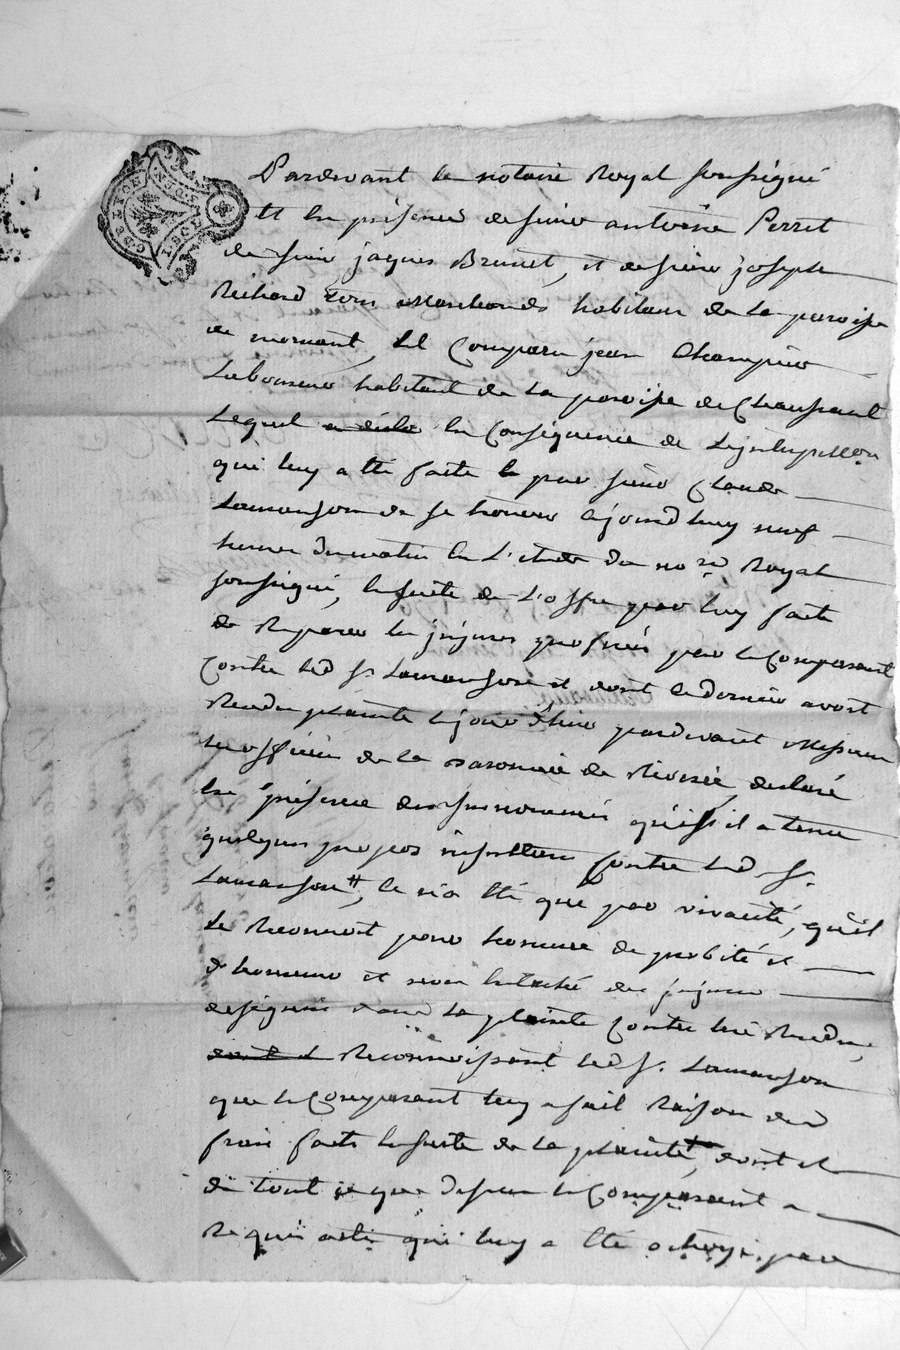 Pardevant le notaire Royal soussigné
Et en présence de sieur antoine Perret
de sieur jaques Brunet, et de sieur joseph
Richard tous Marchands habitans de la paroisse
de mornant, Est Comparu jean Champin
Laboureur habitant de la paroisse de Chaussant
Lequel a déclaré en Conséquence de L'interpellon
qui luy a été faite par sieur Claude
Lamanson de se trouver ajourd'huy neuf
heures du matin en L'etude du nore Royal
soussigné, ensuite de L'offre par luy faite
de Reparer les injures proférées par le Comparant
Contre led Sr Lamanson et dont ce dernier avoit
Rendu plainte le jour d'hier pardevant Messieurs
les officiers de la Baronnie de Riverie, declaré
en présence des susnommés que s'il a tenu
quelques propos insultans Contre led Sr
Lamanson, ce n'a été que par vivacité, qu'il
Le Reconnoit pour homme de probité et
d'honneur et non entaché des injures
designées dans la plainte Contre luy Rendue,
Reconnoissant led Sr Lamanson
que le Comparant luy a fait Raison des
frais faits ensuite de la plainte, dont et
de tout ce que dessus le Comparant a
Requis acte qui luy a été octroyé par